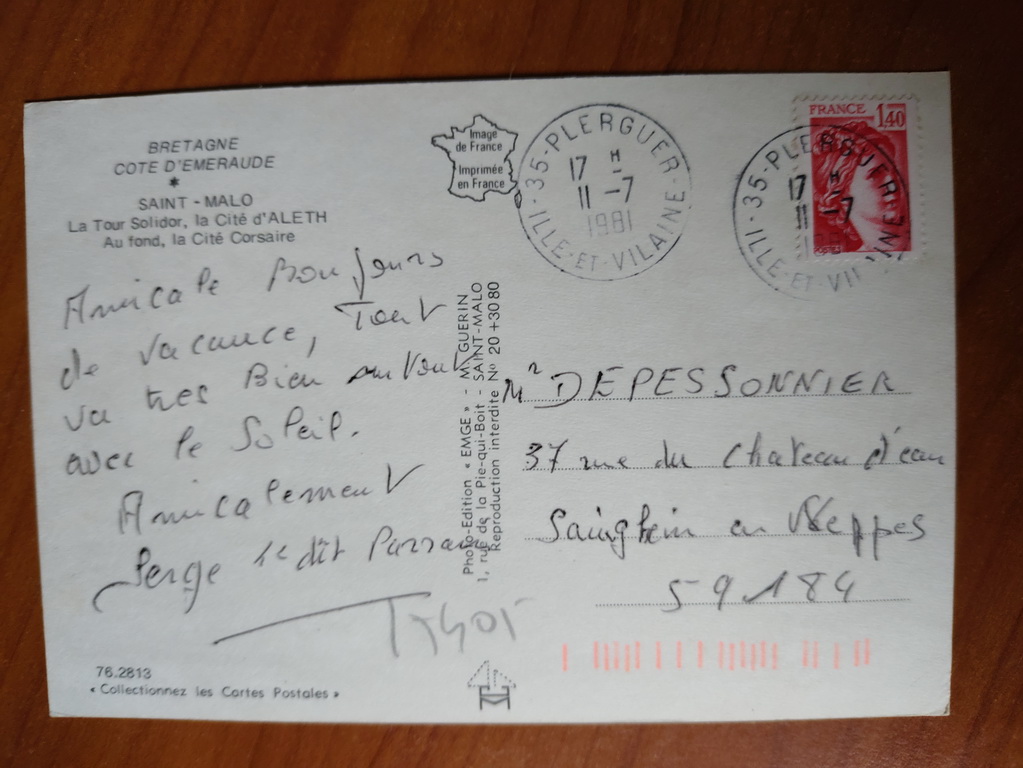 BRETAGNE
COTE D'EMERAUDE
*
SAINT - MALO
La Tour Solidor, la Cité d'ALETH
Au fond, la Cité Corsaire
Amicale Bonjours
de vacance, Tout
va tres Bien surtout
avec le Soleil.
Amicalement
Serge le dit Parrain
76.2813
« Collectionnez les Cartes Postales »
Photo-Edition « EMGE » - M. GUERIN
1, rue de la Pie-qui-Boit - SAINT-MALO
Reproduction interdite No 20 + 30 80
Image
de France
Imprimée
en France
35-PLERGUER
17 H
11-7
1981
ILLE-ET-VILAINE
FRANCE 1,40
35-PLERGUER
17 H
11-7
ILLE-ET-VILAINE
Mr DEPESSONNIER
37 rue du Chateau d'eau
Sainghin en Weppes
59184